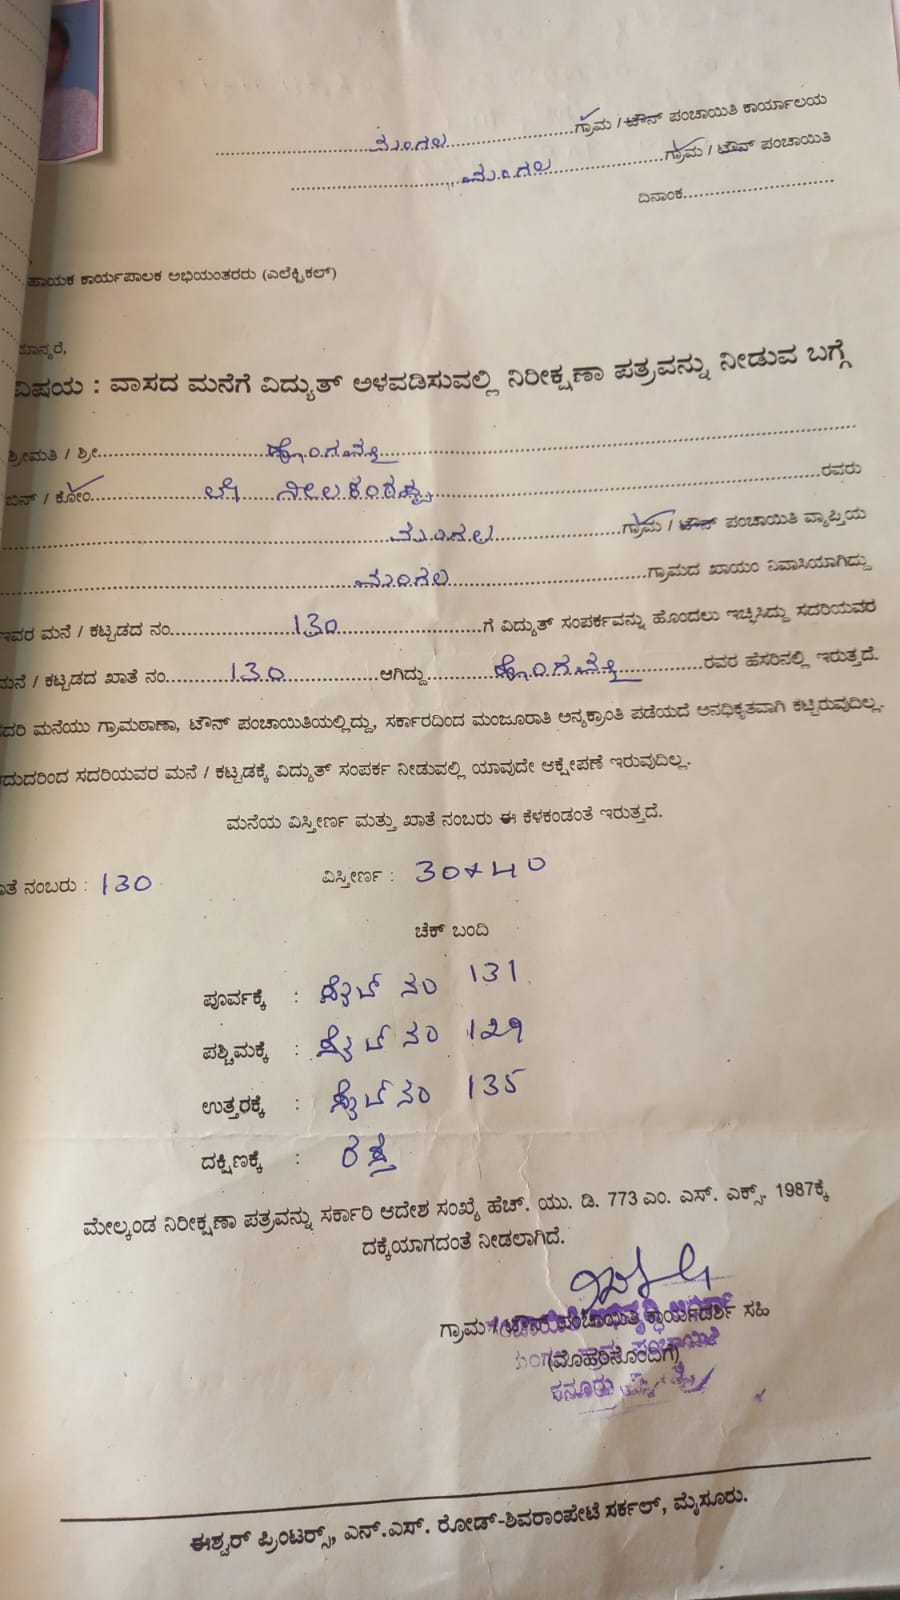 ಮಂಗಲ ಗ್ರಾಮ / ಟೌನ್ ಪಂಚಾಯಿತಿ ಕಾರ್ಯಾಲಯ
ಮಂಗಲ ಗ್ರಾಮ / ಟೌನ್ ಪಂಚಾಯಿತಿ
ದಿನಾಂಕ
ಹಾಯಕ ಕಾರ್ಯಪಾಲಕ ಅಭಿಯಂತರರು (ಎಲೆಕ್ಟ್ರಿಕಲ್)
ಮಾನ್ಯರೆ,
ವಿಷಯ : ವಾಸದ ಮನೆಗೆ ವಿದ್ಯುತ್ ಅಳವಡಿಸುವಲ್ಲಿ ನಿರೀಕ್ಷಣಾ ಪತ್ರವನ್ನು ನೀಡುವ ಬಗ್ಗೆ
ಶ್ರೀಮತಿ / ಶ್ರೀ
ಬಿನ್ / ಕೋಂ ಲೇ ನೀಲಕಂಠಪ್ಪ ರವರು
ಮಂಗಲ ಗ್ರಾಮ / ಟೌನ್ ಪಂಚಾಯಿತಿ ವ್ಯಾಪ್ತಿಯ
ಮಂಗಲ ಗ್ರಾಮದ ಖಾಯಂ ನಿವಾಸಿಯಾಗಿದ್ದು
ಇವರ ಮನೆ / ಕಟ್ಟಡದ ನಂ. 130 ಗೆ ವಿದ್ಯುತ್ ಸಂಪರ್ಕವನ್ನು ಹೊಂದಲು ಇಚ್ಛಿಸಿದ್ದು ಸದರಿಯವರ
ಮನೆ / ಕಟ್ಟಡದ ಖಾತೆ ನಂ. 130 ಆಗಿದ್ದು ರವರ ಹೆಸರಿನಲ್ಲಿ ಇರುತ್ತದೆ.
ಸದರಿ ಮನೆಯು ಗ್ರಾಮಠಾಣಾ, ಟೌನ್ ಪಂಚಾಯಿತಿಯಲ್ಲಿದ್ದು, ಸರ್ಕಾರದಿಂದ ಮಂಜೂರಾತಿ ಅನ್ಯಕ್ರಾಂತಿ ಪಡೆಯದೆ ಅನಧಿಕೃತವಾಗಿ ಕಟ್ಟಿರುವುದಿಲ್ಲ.
ದುದರಿಂದ ಸದರಿಯವರ ಮನೆ / ಕಟ್ಟಡಕ್ಕೆ ವಿದ್ಯುತ್ ಸಂಪರ್ಕ ನೀಡುವಲ್ಲಿ ಯಾವುದೇ ಆಕ್ಷೇಪಣೆ ಇರುವುದಿಲ್ಲ.
ಮನೆಯ ವಿಸ್ತೀರ್ಣ ಮತ್ತು ಖಾತೆ ನಂಬರು ಈ ಕೆಳಕಂಡಂತೆ ಇರುತ್ತದೆ.
ತೆ ನಂಬರು : 130 ವಿಸ್ತೀರ್ಣ : 30×40
ಚೆಕ್ ಬಂದಿ
ಪೂರ್ವಕ್ಕೆ : ಸೈಟ್ ನಂ 131
ಪಶ್ಚಿಮಕ್ಕೆ : ಸೈಟ್ ನಂ 129
ಉತ್ತರಕ್ಕೆ : ಸೈಟ್ ನಂ 135
ದಕ್ಷಿಣಕ್ಕೆ : ರಸ್ತೆ
ಮೇಲ್ಕಂಡ ನಿರೀಕ್ಷಣಾ ಪತ್ರವನ್ನು ಸರ್ಕಾರಿ ಆದೇಶ ಸಂಖ್ಯೆ ಹೆಚ್. ಯು. ಡಿ. 773 ಎಂ. ಎಸ್. ಎಕ್ಸ್. 1987ಕ್ಕೆ
ದಕ್ಕೆಯಾಗದಂತೆ ನೀಡಲಾಗಿದೆ.
ಗ್ರಾಮ / ಟೌನ್ ಪಂಚಾಯಿತಿ ಕಾರ್ಯದರ್ಶಿ ಸಹಿ
(ಮೊಹರಿನೊಂದಿಗೆ)
ಈಶ್ವರ್ ಪ್ರಿಂಟರ್ಸ್, ಎನ್.ಎಸ್. ರೋಡ್-ಶಿವರಾಂಪೇಟೆ ಸರ್ಕಲ್, ಮೈಸೂರು.